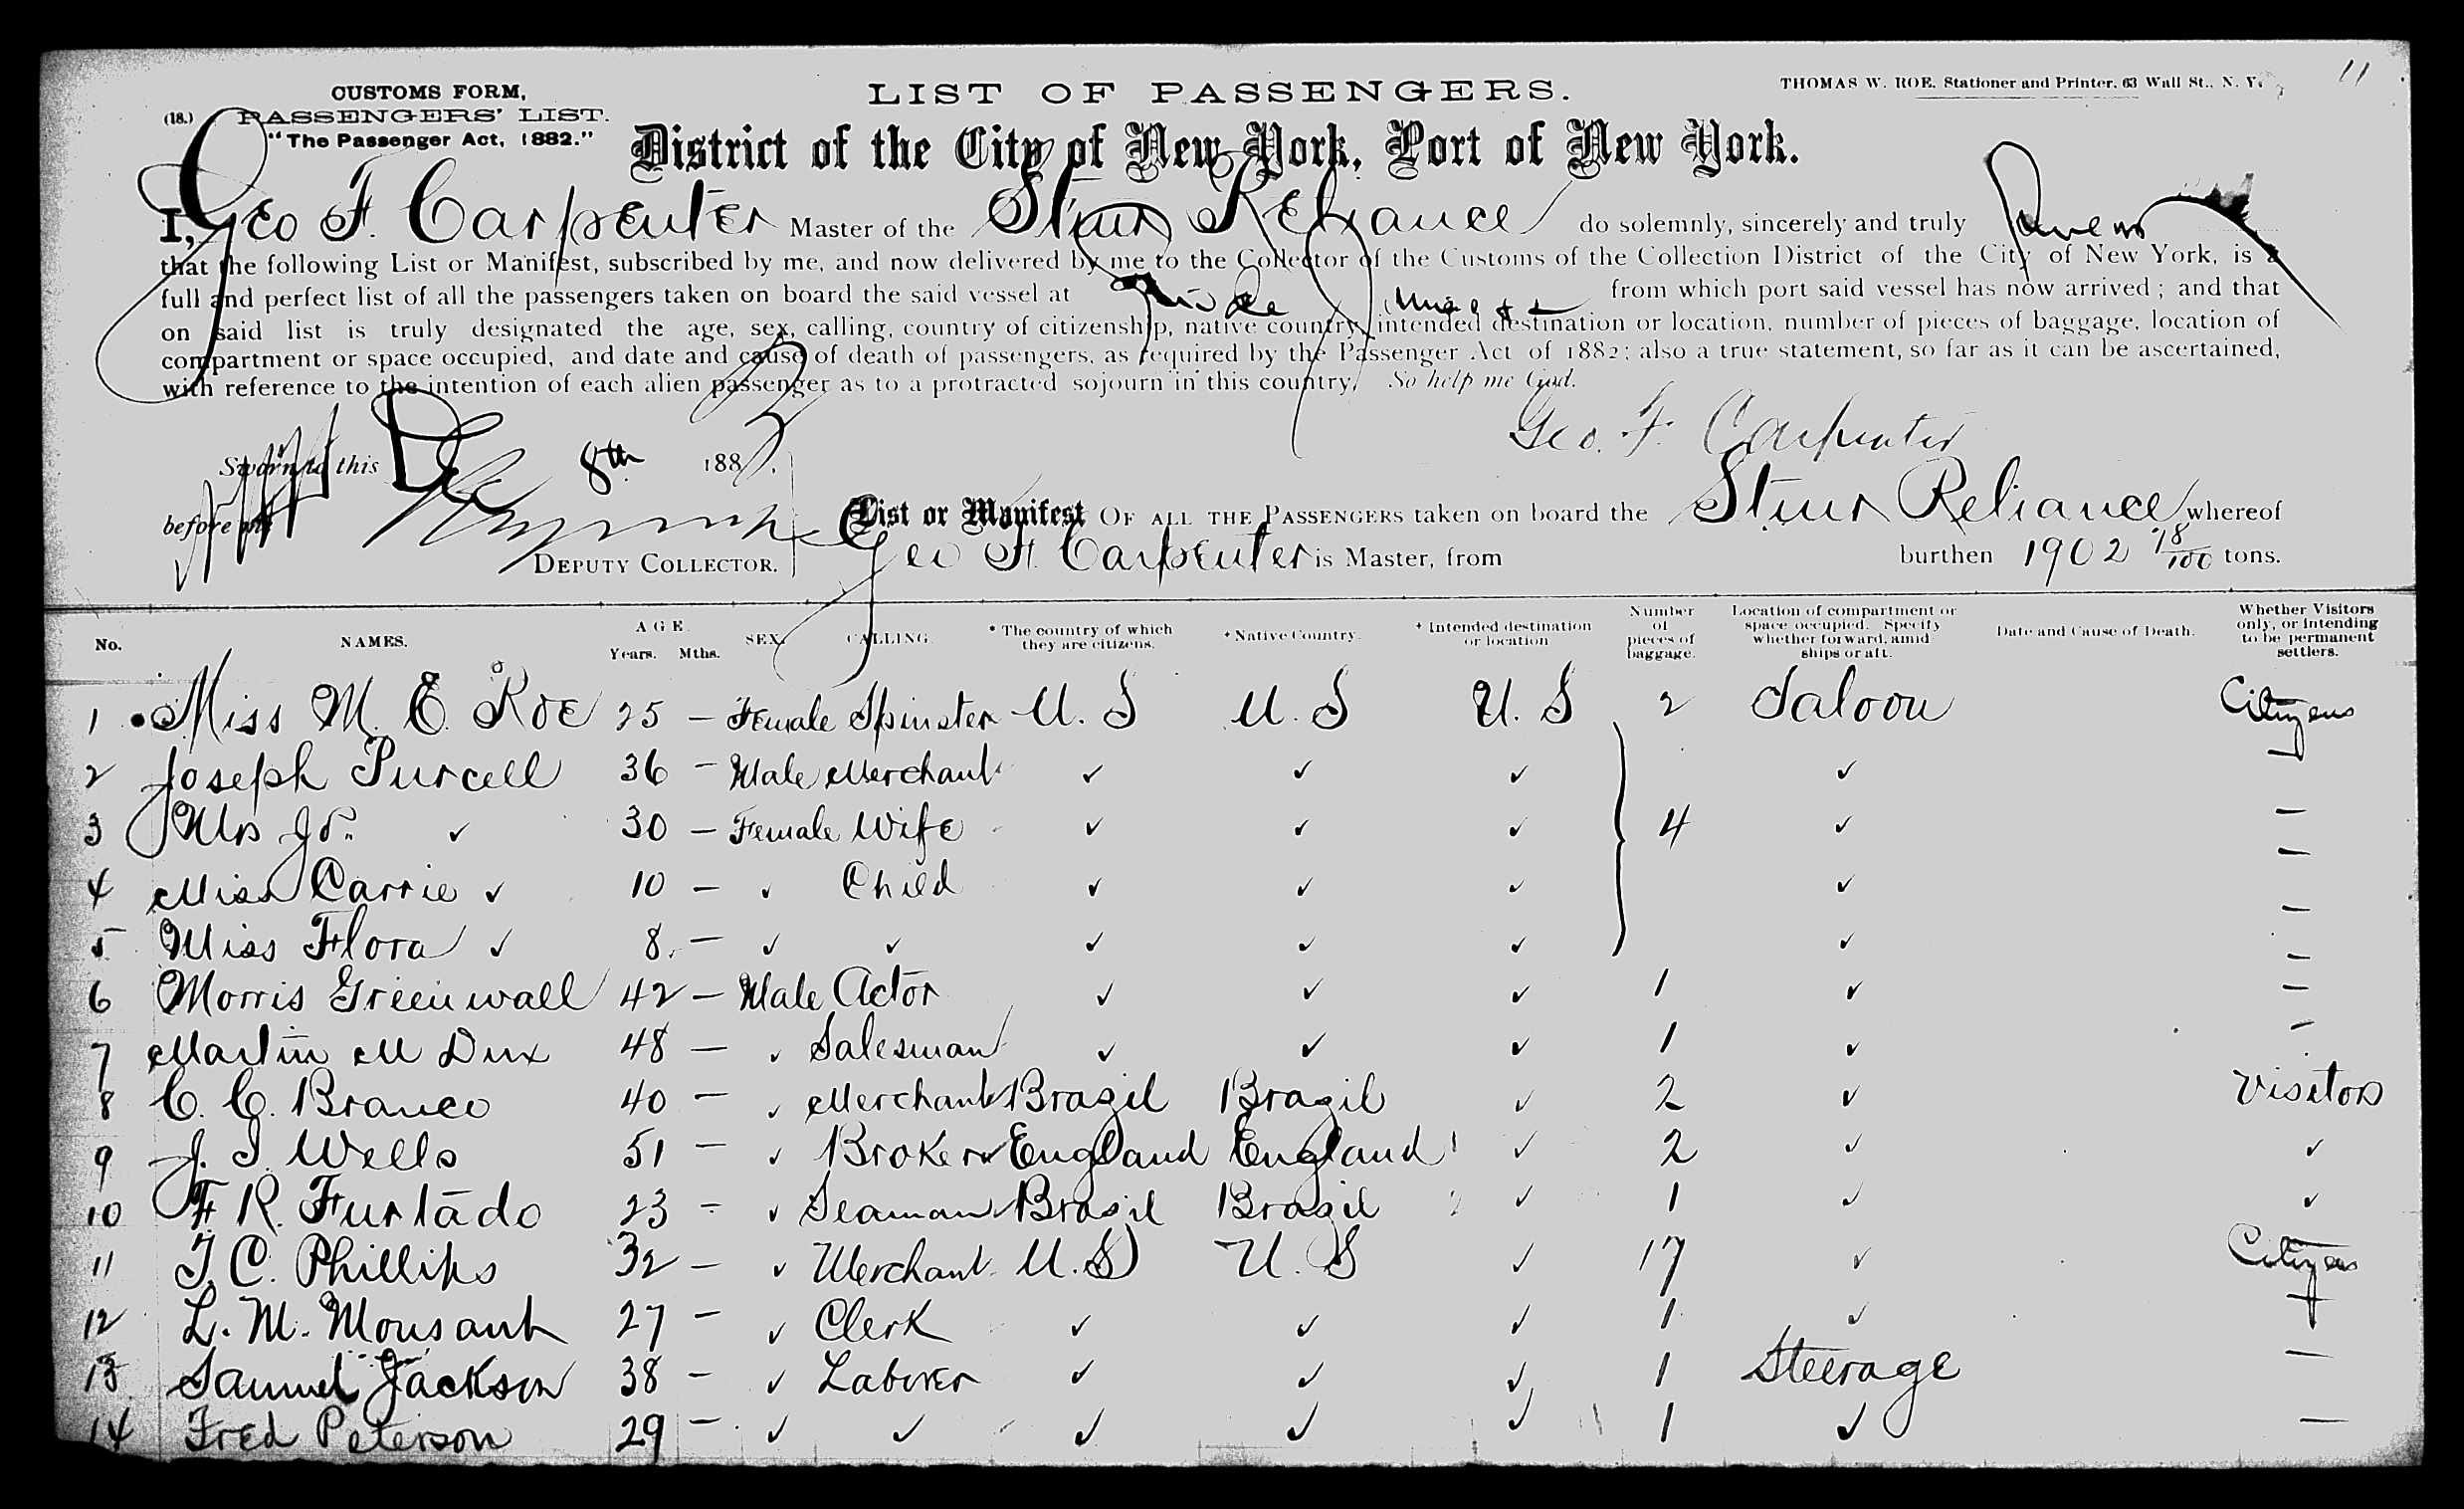 11
CUSTOMS FORM,
LIST OF PASSENGERS.
THOMAS W. ROE, Stationer and Printer, 63 Wall St., N. Y.
(18.) PASSENGERS' LIST.
"The Passenger Act, 1882."
District of the City of New York, Port of New York.
I, Geo F. Carpenter Master of the Stmr Reliance do solemnly, sincerely and truly swear
that the following List or Manifest, subscribed by me, and now delivered by me to the Collector of the Customs of the Collection District of the City of New York, is a
full and perfect list of all the passengers taken on board the said vessel at from which port said vessel has now arrived; and that
on said list is truly designated the age, sex, calling, country of citizenship, native country, intended destination or location, number of pieces of baggage, location of
compartment or space occupied, and date and cause of death of passengers, as required by the Passenger Act of 1882; also a true statement, so far as it can be ascertained,
with reference to the intention of each alien passenger as to a protracted sojourn in this country. So help me God.
Geo. F. Carpenter
Sworn to this Dec 8th 188
before me
DEPUTY COLLECTOR.
List or Manifest OF ALL THE PASSENGERS taken on board the Stmr Reliance whereof
Geo F. Carpenter is Master, from burthen 1902 78/100 tons.
No. NAMES. AGE. Years. Mths. SEX. CALLING. * The country of which they are citizens. * Native Country. * Intended destination or location. Number of pieces of baggage. Location of compartment or space occupied. Specify whether forward, amidships or aft. Date and Cause of Death. Whether Visitors only, or intending to be permanent settlers.
1 Miss M. E. Roe 25 — Female Spinster U. S U. S U. S 2 Saloon Citizens
2 Joseph Purcell 36 — Male Merchant ✓ ✓ ✓ ✓ —
3 Mrs Jos. ✓ 30 — Female Wife ✓ ✓ ✓ 4 ✓ —
4 Miss Carrie ✓ 10 — ✓ Child ✓ ✓ ✓ ✓ —
5 Miss Flora ✓ 8 — ✓ ✓ ✓ ✓ ✓ ✓ —
6 Morris Greenwall 42 — Male Actor ✓ ✓ ✓ 1 ✓ —
7 Martin M Dux 48 — ✓ Salesman ✓ ✓ ✓ 1 ✓ —
8 C. C. Branco 40 — ✓ Merchant Brazil Brazil ✓ 2 ✓ Visitors
9 J. I. Wells 51 — ✓ Broker England England ✓ 2 ✓ ✓
10 F R. Furtādo 23 — ✓ Seaman Brazil Brazil ✓ 1 ✓ ✓
11 T. C. Phillips 32 — ✓ Merchant U. S U. S ✓ 17 ✓ Citizens
12 L. M. Monsanto 27 — ✓ Clerk ✓ ✓ ✓ 1 ✓
13 Samuel Jackson 38 — ✓ Laborer ✓ ✓ ✓ 1 Steerage —
14 Fred Peterson 29 — ✓ ✓ ✓ ✓ ✓ 1 ✓ —